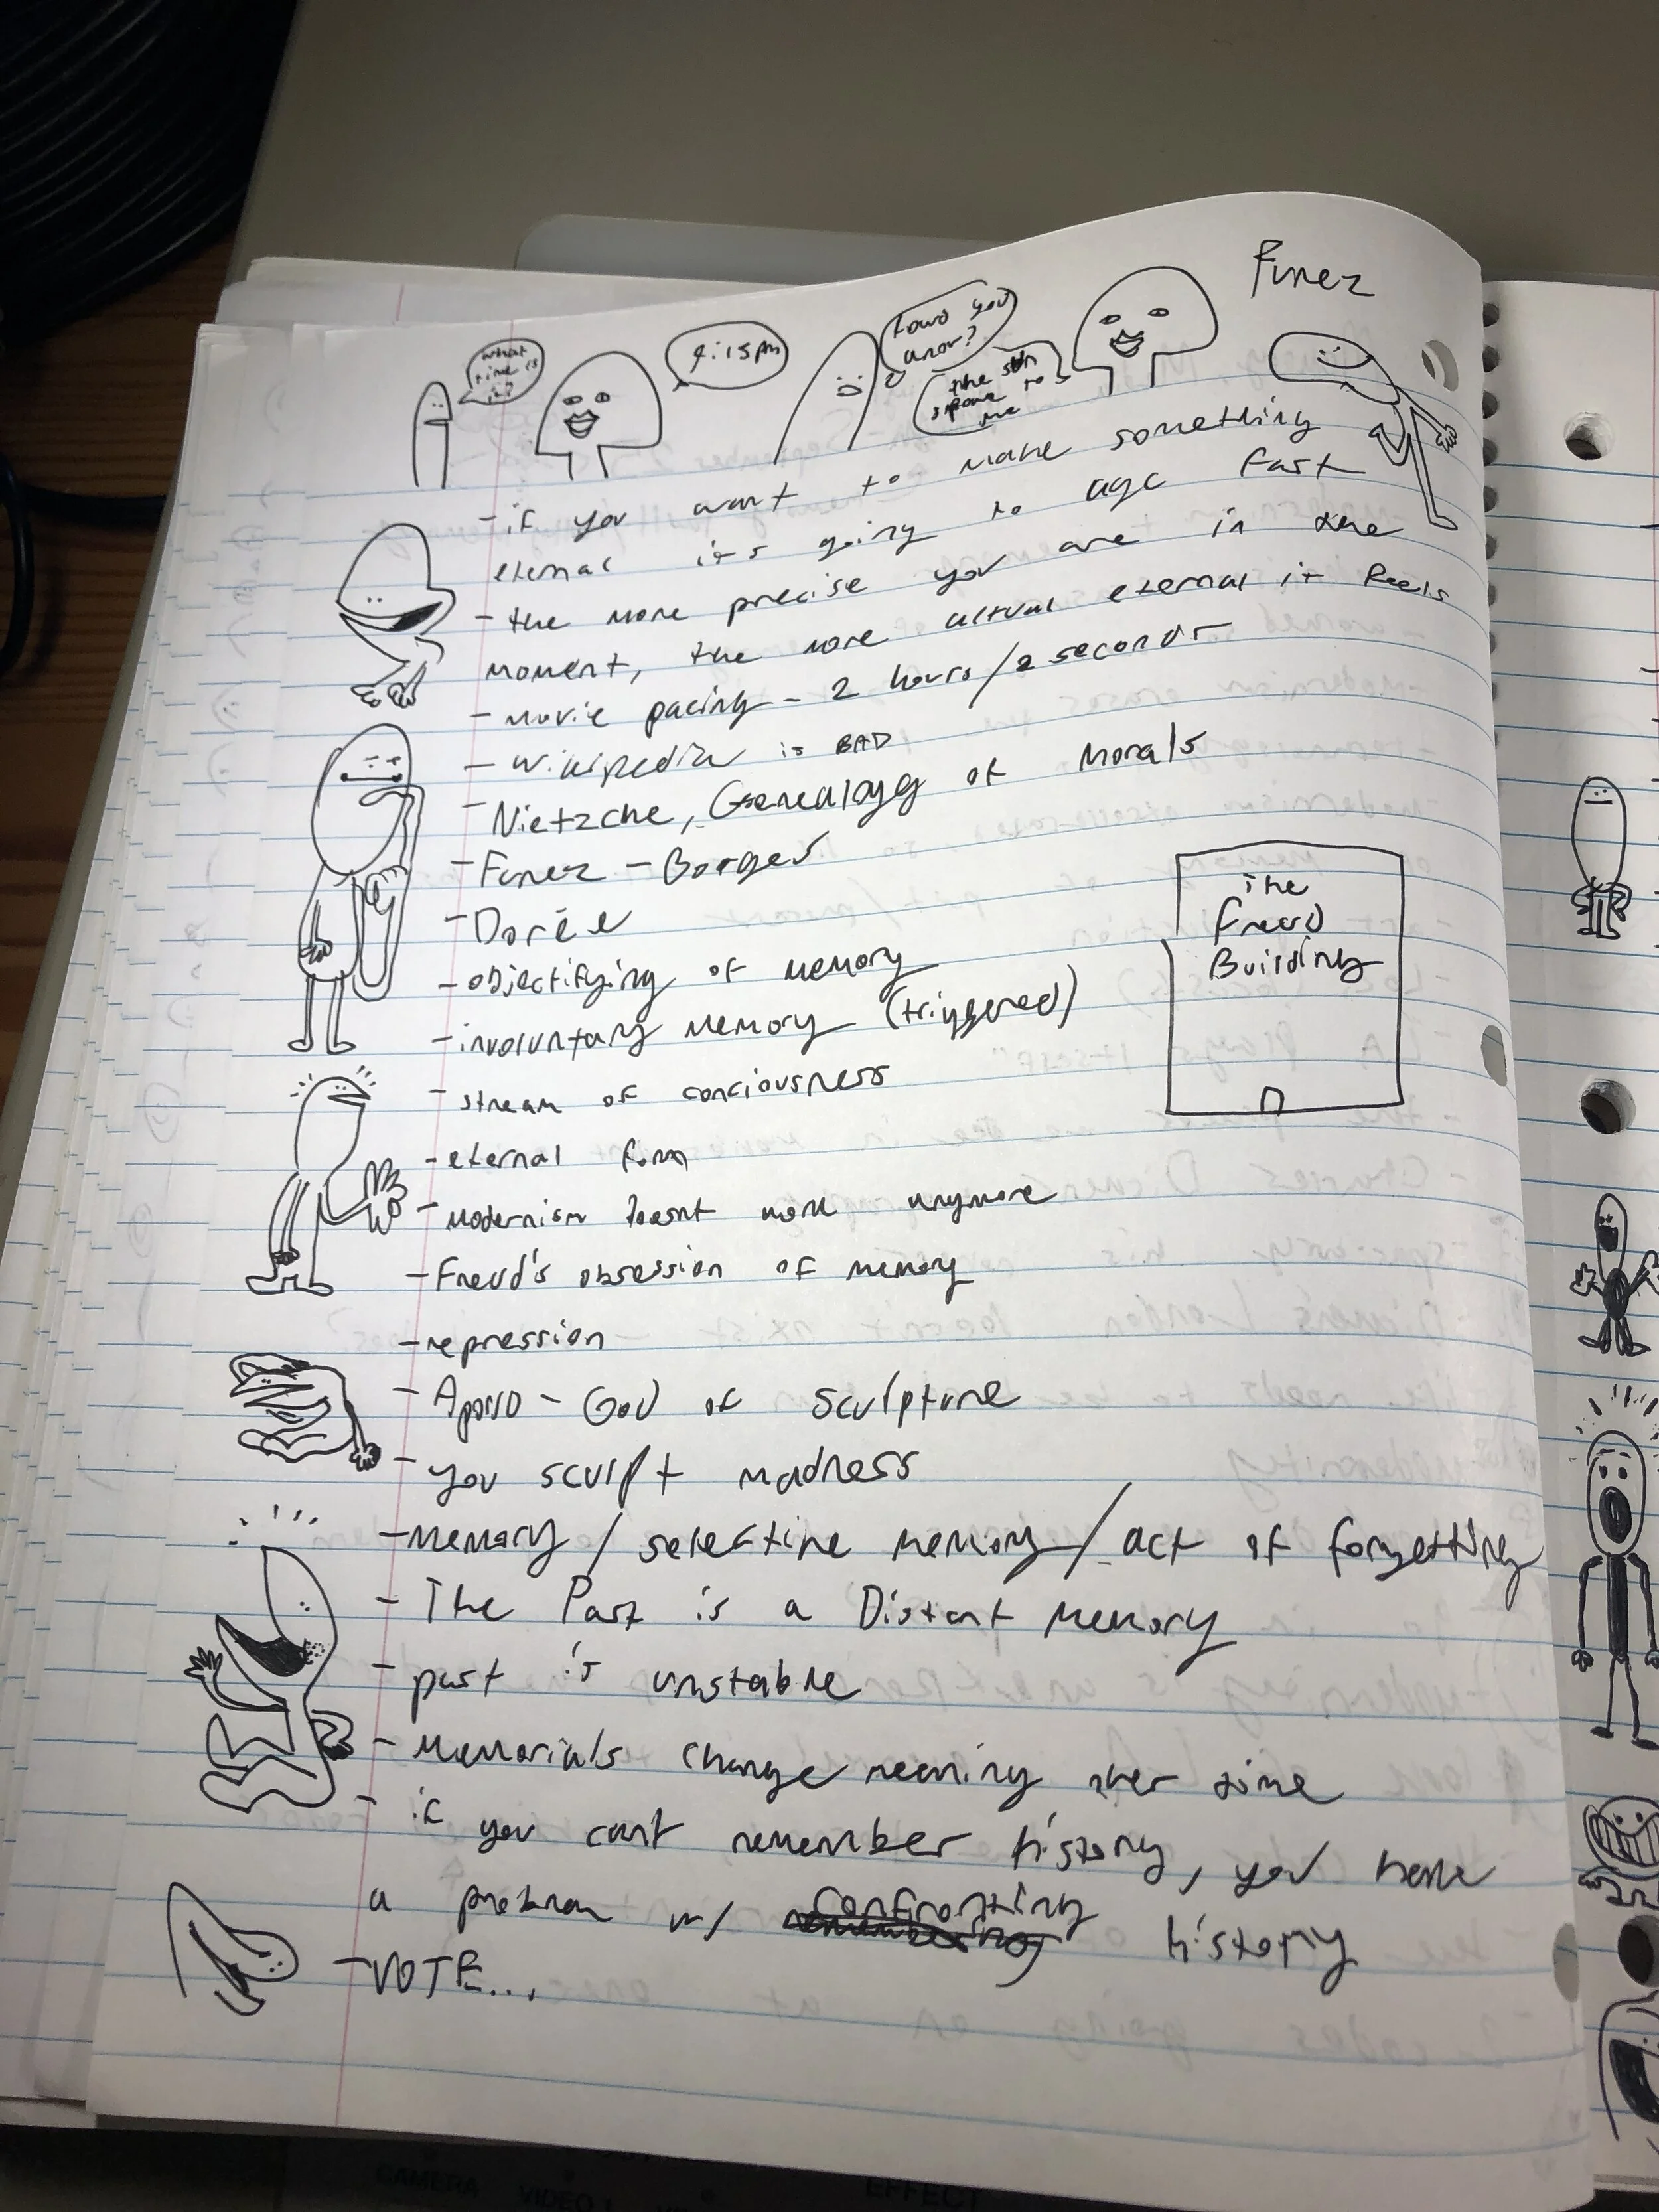 Funez
what
time is
it?
4:15pm
how'd you
know?
the sun
spoke to
me
- if you want to make something
eternal it's going to age fast
- the more precise you are in the
moment, the more actual eternal it feels
- movie pacing - 2 hours/2 seconds
- Wikipedia is BAD
- Nietzche, Genealogy of Morals
- Funez - Borges
- Dorée
- objectifying of memory
- involuntary memory (triggered)
- stream of conciousness
- eternal form
- Modernism doesnt work anymore
- Freud's obsession of memory
- repression
- Apollo - God of sculpture
- you sculpt madness
- Memory / selective memory / act of forgetting
- The Past is a Distant Memory
- past is unstable
- Memorials change meaning over time
- if you cant remember history, you have
a problem w/ confronting history
- VOTE...
The
Freud
Building